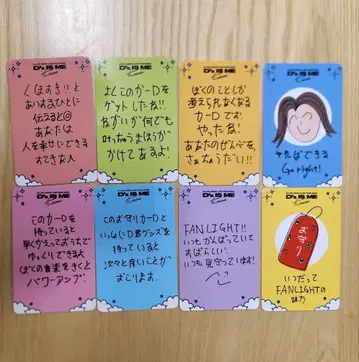 D's IS ME
くぼすき!!と
あいするひとに
伝えると◎
あなたは
人を幸せにできる
すてきな人
D's IS ME
よしこのカードを
ゲットしたね!!
ねがいが何でも
叶っちゃうまほうが
かけてあるよ!
D's IS ME
ぼくのことしか
考えられなくなる
カードです!
やったね!
あなたのぜんぶを、
ちょうだい!!
D's IS ME
やればできる
Go right!
D's IS ME
このカードを
持っていると
早くかえっておうちで
ゆっくりできるよ
ぼくの音楽をきくと
パワーアップ!
D's IS ME
このお守りカードと
いっしょにD君グッズを
持っていると
次々と良いことが
おこります。
D's IS ME
FANLIGHT!!
いつもがんばっていて
すばらしい!
いつも見守っています!
D's IS ME
お守り
いつだって
FANLIGHTの
味方